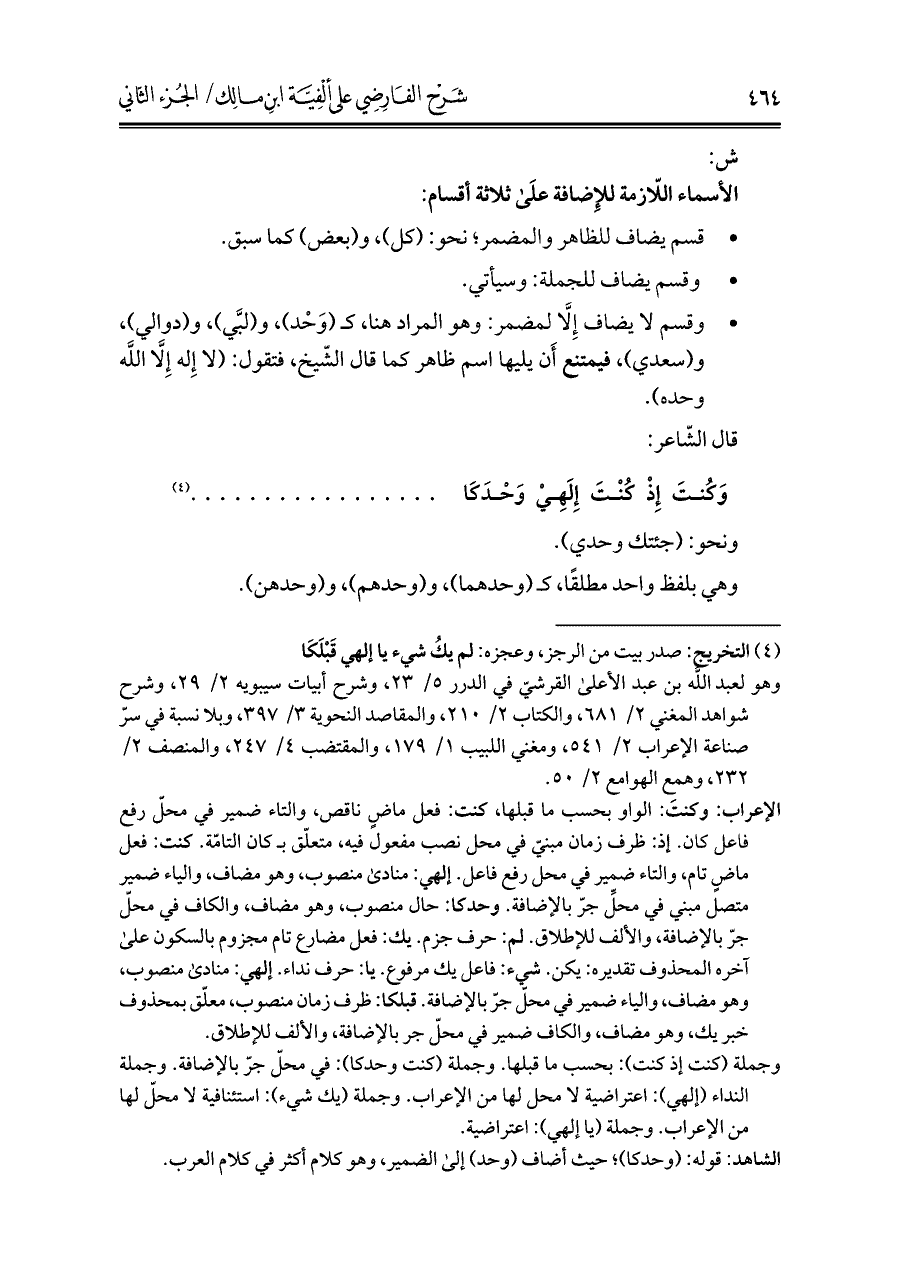 ٤٦٤ شَرْح الفَارِضِي على أَلْفِيَّة ابنِ مالِك/ الجُزء الثاني
ش:
الأسماء اللّازمة للإِضافة علَىٰ ثلاثة أقسام:
• قسم يضاف للظاهر والمضمر؛ نحو: (كل)، و(بعض) كما سبق.
• وقسم يضاف للجملة: وسيأتي.
• وقسم لا يضاف إِلَّا لمضمر: وهو المراد هنا، كـ (وَحْد)، و(لبَّي)، و(دوالي)،
و(سعدي)، فيمتنع أَن يليها اسم ظاهر كما قال الشّيخ، فتقول: (لا إِله إِلَّا اللَّه
وحده).
قال الشّاعر:
وَكُنـتَ إِذْ كُنْـتَ إِلَهِـيْ وَحْـدَكَا . . . . . . . . . . . . . . . . . .(٤)
ونحو: (جئتك وحدي).
وهي بلفظ واحد مطلقًا، كـ (وحدهما)، و(وحدهم)، و(وحدهن).
(٤) التخريج: صدر بيت من الرجز، وعجزه: لم يكُ شيء يا إلهي قَبْلَكَا
وهو لعبد اللَّه بن عبد الأعلىٰ القرشيّ في الدرر ٥/ ٢٣، وشرح أبيات سيبويه ٢/ ٢٩، وشرح
شواهد المغني ٢/ ٦٨١، والكتاب ٢/ ٢١٠، والمقاصد النحوية ٣/ ٣٩٧، وبلا نسبة في سرّ
صناعة الإعراب ٢/ ٥٤١، ومغني اللبيب ١/ ١٧٩، والمقتضب ٤/ ٢٤٧، والمنصف ٢/
٢٣٢، وهمع الهوامع ٢/ ٥٠.
الإعراب: وكنتَ: الواو بحسب ما قبلها، كنت: فعل ماضٍ ناقص، والتاء ضمير في محلّ رفع
فاعل كان. إذ: ظرف زمان مبنيّ في محل نصب مفعول فيه، متعلّق بـ كان التامّة. كنت: فعل
ماضٍ تام، والتاء ضمير في محل رفع فاعل. إلهي: منادىٰ منصوب، وهو مضاف، والياء ضمير
متصل مبني في محلِّ جرّ بالإضافة. وحدكا: حال منصوب، وهو مضاف، والكاف في محلّ
جرّ بالإضافة، والألف للإطلاق. لم: حرف جزم. يك: فعل مضارع تام مجزوم بالسكون علىٰ
آخره المحذوف تقديره: يكن. شيء: فاعل يك مرفوع. يا: حرف نداء. إلهي: منادىٰ منصوب،
وهو مضاف، والياء ضمير في محلّ جرّ بالإضافة. قبلكا: ظرف زمان منصوب، معلّق بمحذوف
خبر يك، وهو مضاف، والكاف ضمير في محلّ جر بالإضافة، والألف للإطلاق.
وجملة (كنت إذ كنت): بحسب ما قبلها. وجملة (كنت وحدكا): في محلّ جرّ بالإضافة. وجملة
النداء (إلهي): اعتراضية لا محل لها من الإعراب. وجملة (يك شيء): استئنافية لا محلّ لها
من الإعراب. وجملة (يا إلهي): اعتراضية.
الشاهد: قوله: (وحدكا)؛ حيث أضاف (وحد) إلىٰ الضمير، وهو كلام أكثر في كلام العرب.